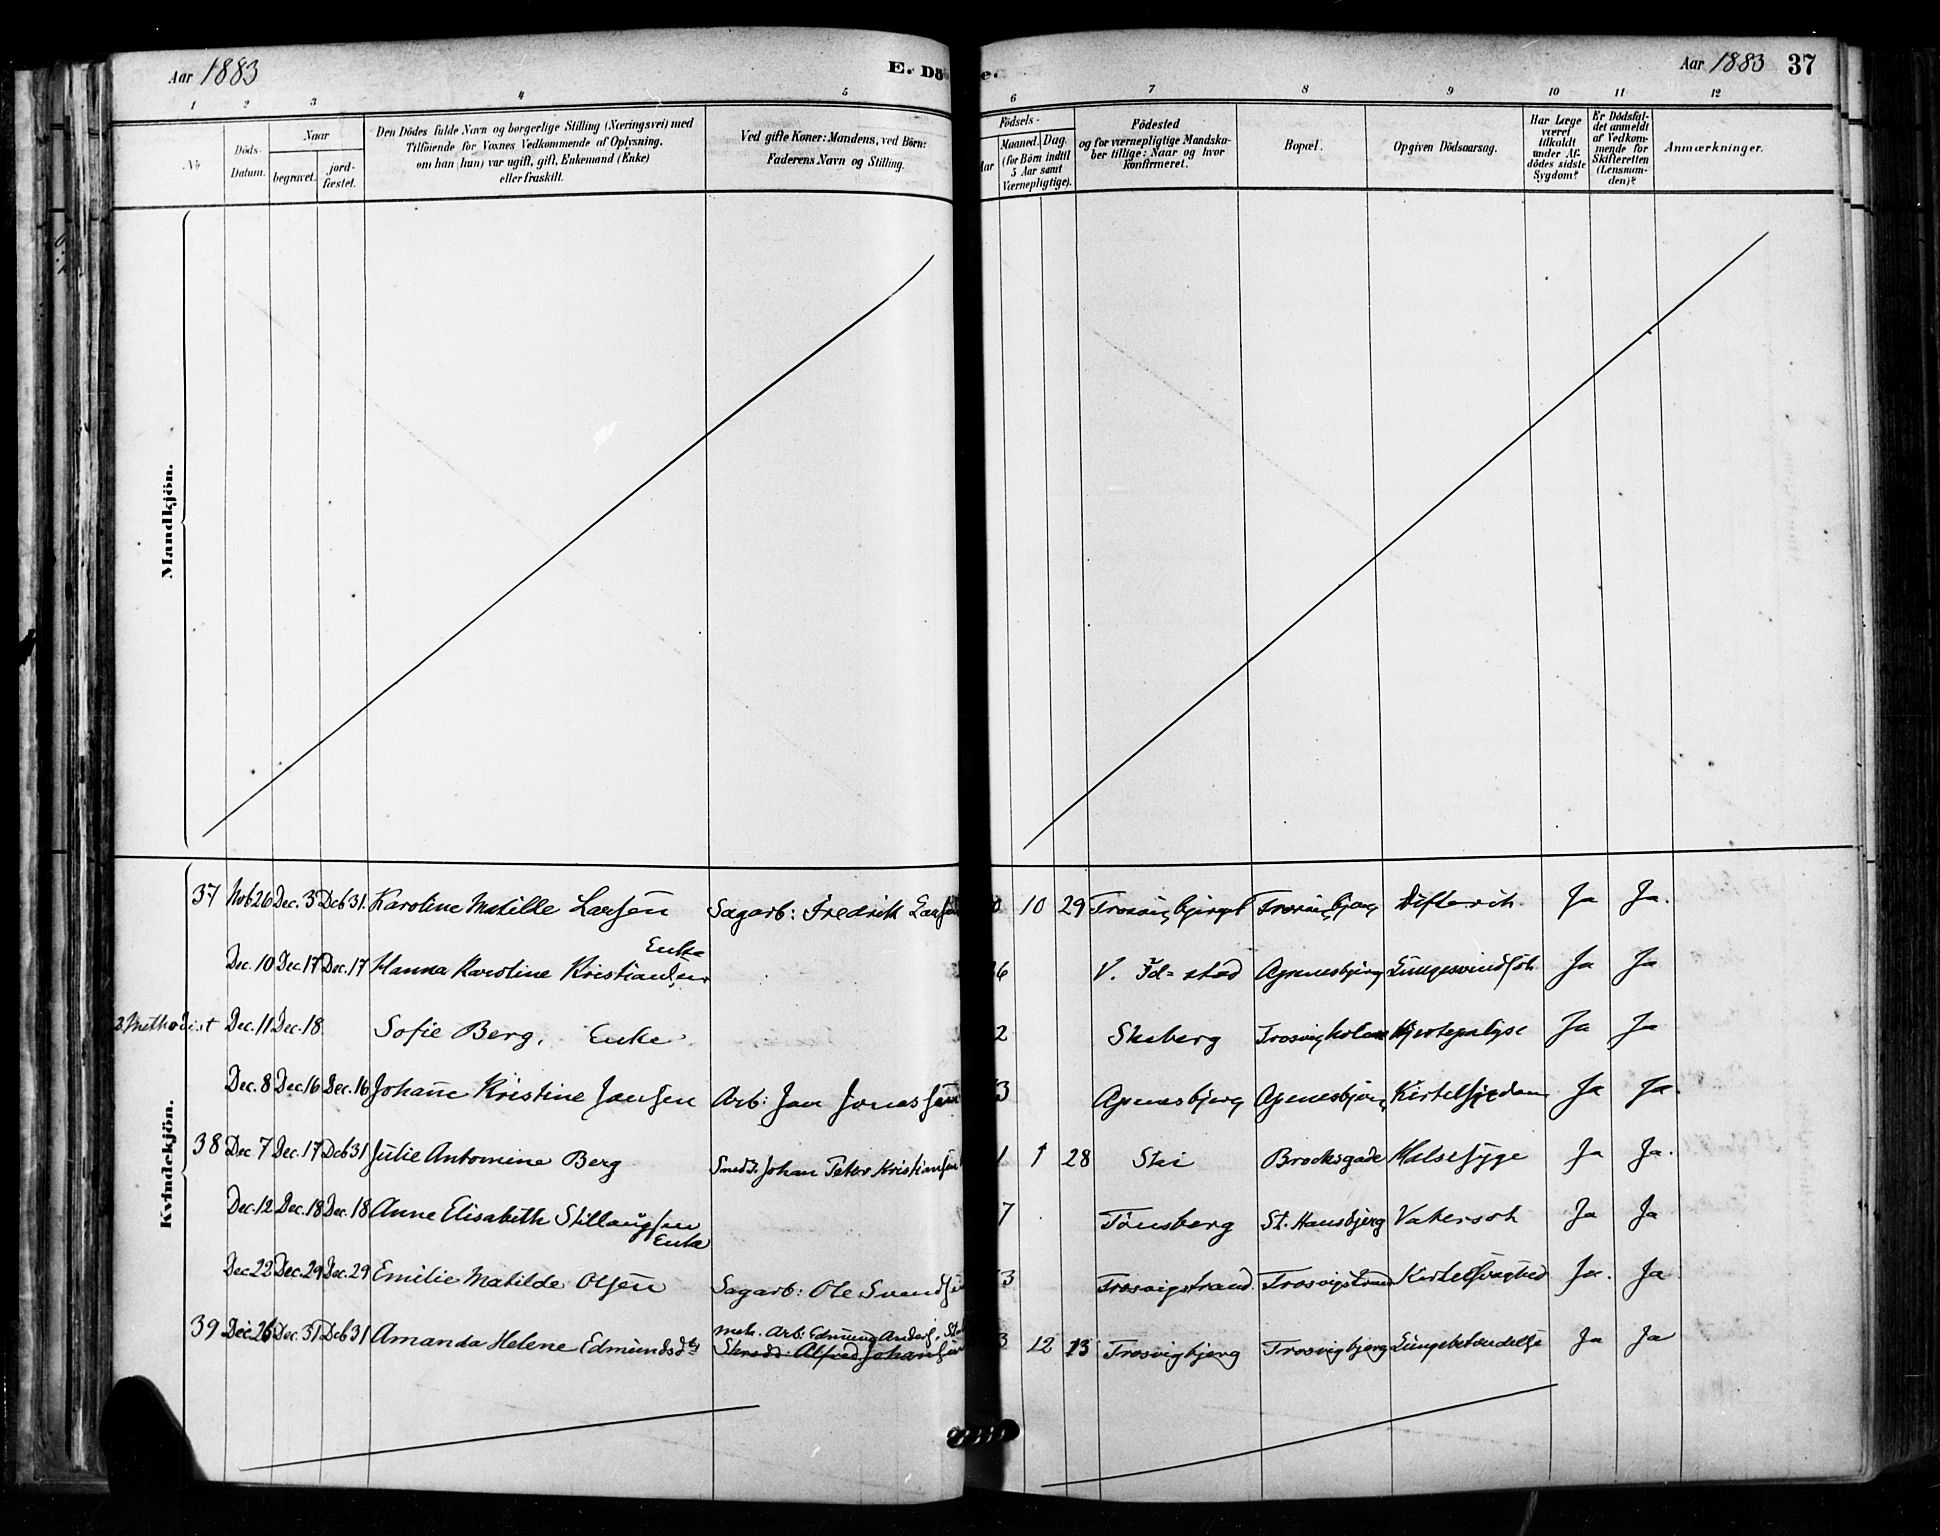 Aar 1883
E. Dö
e.
Aar 1883 37
1 2 3 4 5 6 7 8 9 10 11 12
No
Döds-Datum.
Naar
begravet.
jord-fæstet.
Den Dödes fulde Navn og borgerlige Stilling (Næringsvei) med
Tilföiende for Voxnes Vedkommende af Oplysning,
om han (hun) var ugift, gift, Enkemand (Enke)
eller fraskilt.
Ved gifte Koner: Mandens, ved Börn:
Faderens Navn og Stilling.
Födsels-
Aar
Maaned. Dag.
(for Börn indtil
5 Aar samt
Værnepligtige).
Födested
og for værnepligtige Mandska-
ber tillige: Naar og hvor
Konfirmeret.
Bopæl.
Opgiven Dödsaarsag.
Har Læge
været
tilkaldt
under Af-
dödes sidste
Sygdom?
Er Dödsfal-
det anmeldt
af Vedkom-
mende for
Skifteretten
(Lensman-
den)?
Anmærkninger.
Mandkjön.
Kvindekjön.
37 Nob 26 Dec. 3 Dcb 31. Karoline Matilde Larsen Sagarb: Fredrik Larsen 10 29 Trosvigbjerget Trosvigbjerg Difterit Ja Ja.
Dec. 10 Dec 17 Dec. 17 Hanna Karoline Kristiansen Enke 6 V. Fd=stad Agnesbjerg Lungesvindsot Ja Ja
Methodist Dec. 11 Dec. 18 Sofie Berg, Enke 2 Skeberg Trosvigholm Hjertepalyse Ja Ja
Dec. 8 Dec 16 Dec. 16 Johanne Kristine Jansen Arb: Jan Jonassen 3 Agnesbjerg Agnesbjerg Kirtelsygdom Ja Ja.
38 Dec 7 Dec. 17 Dcb 31 Julie Antomine Berg Smed: Johan Peter Kristiansen 1 1 28 Stai Brocksgade Halsesyge Ja Ja.
Dec. 12 Dec. 18 Dec. 18 Anne Elisabeth Stillaugsen Enke 7 Tönsberg St. Hansbjerg Vatersot Ja Ja
Dec 22 Dec. 29 Dec. 29 Emilie Matilde Olsen Sagarb: Ole Svendsen 3 Trosvigstrand Trosvigstrand Kirtelsvaghed Ja. Ja
39 Dec. 26 Dec. 31 Dcb 31 Amanda Helene Edmundsdt. mek. Arb: Edmund Anders.
Skrædd: Alfred Johansen 3 12 13 Trosvigbjerg Trosvigbjerg Lungebetændelse Ja Ja